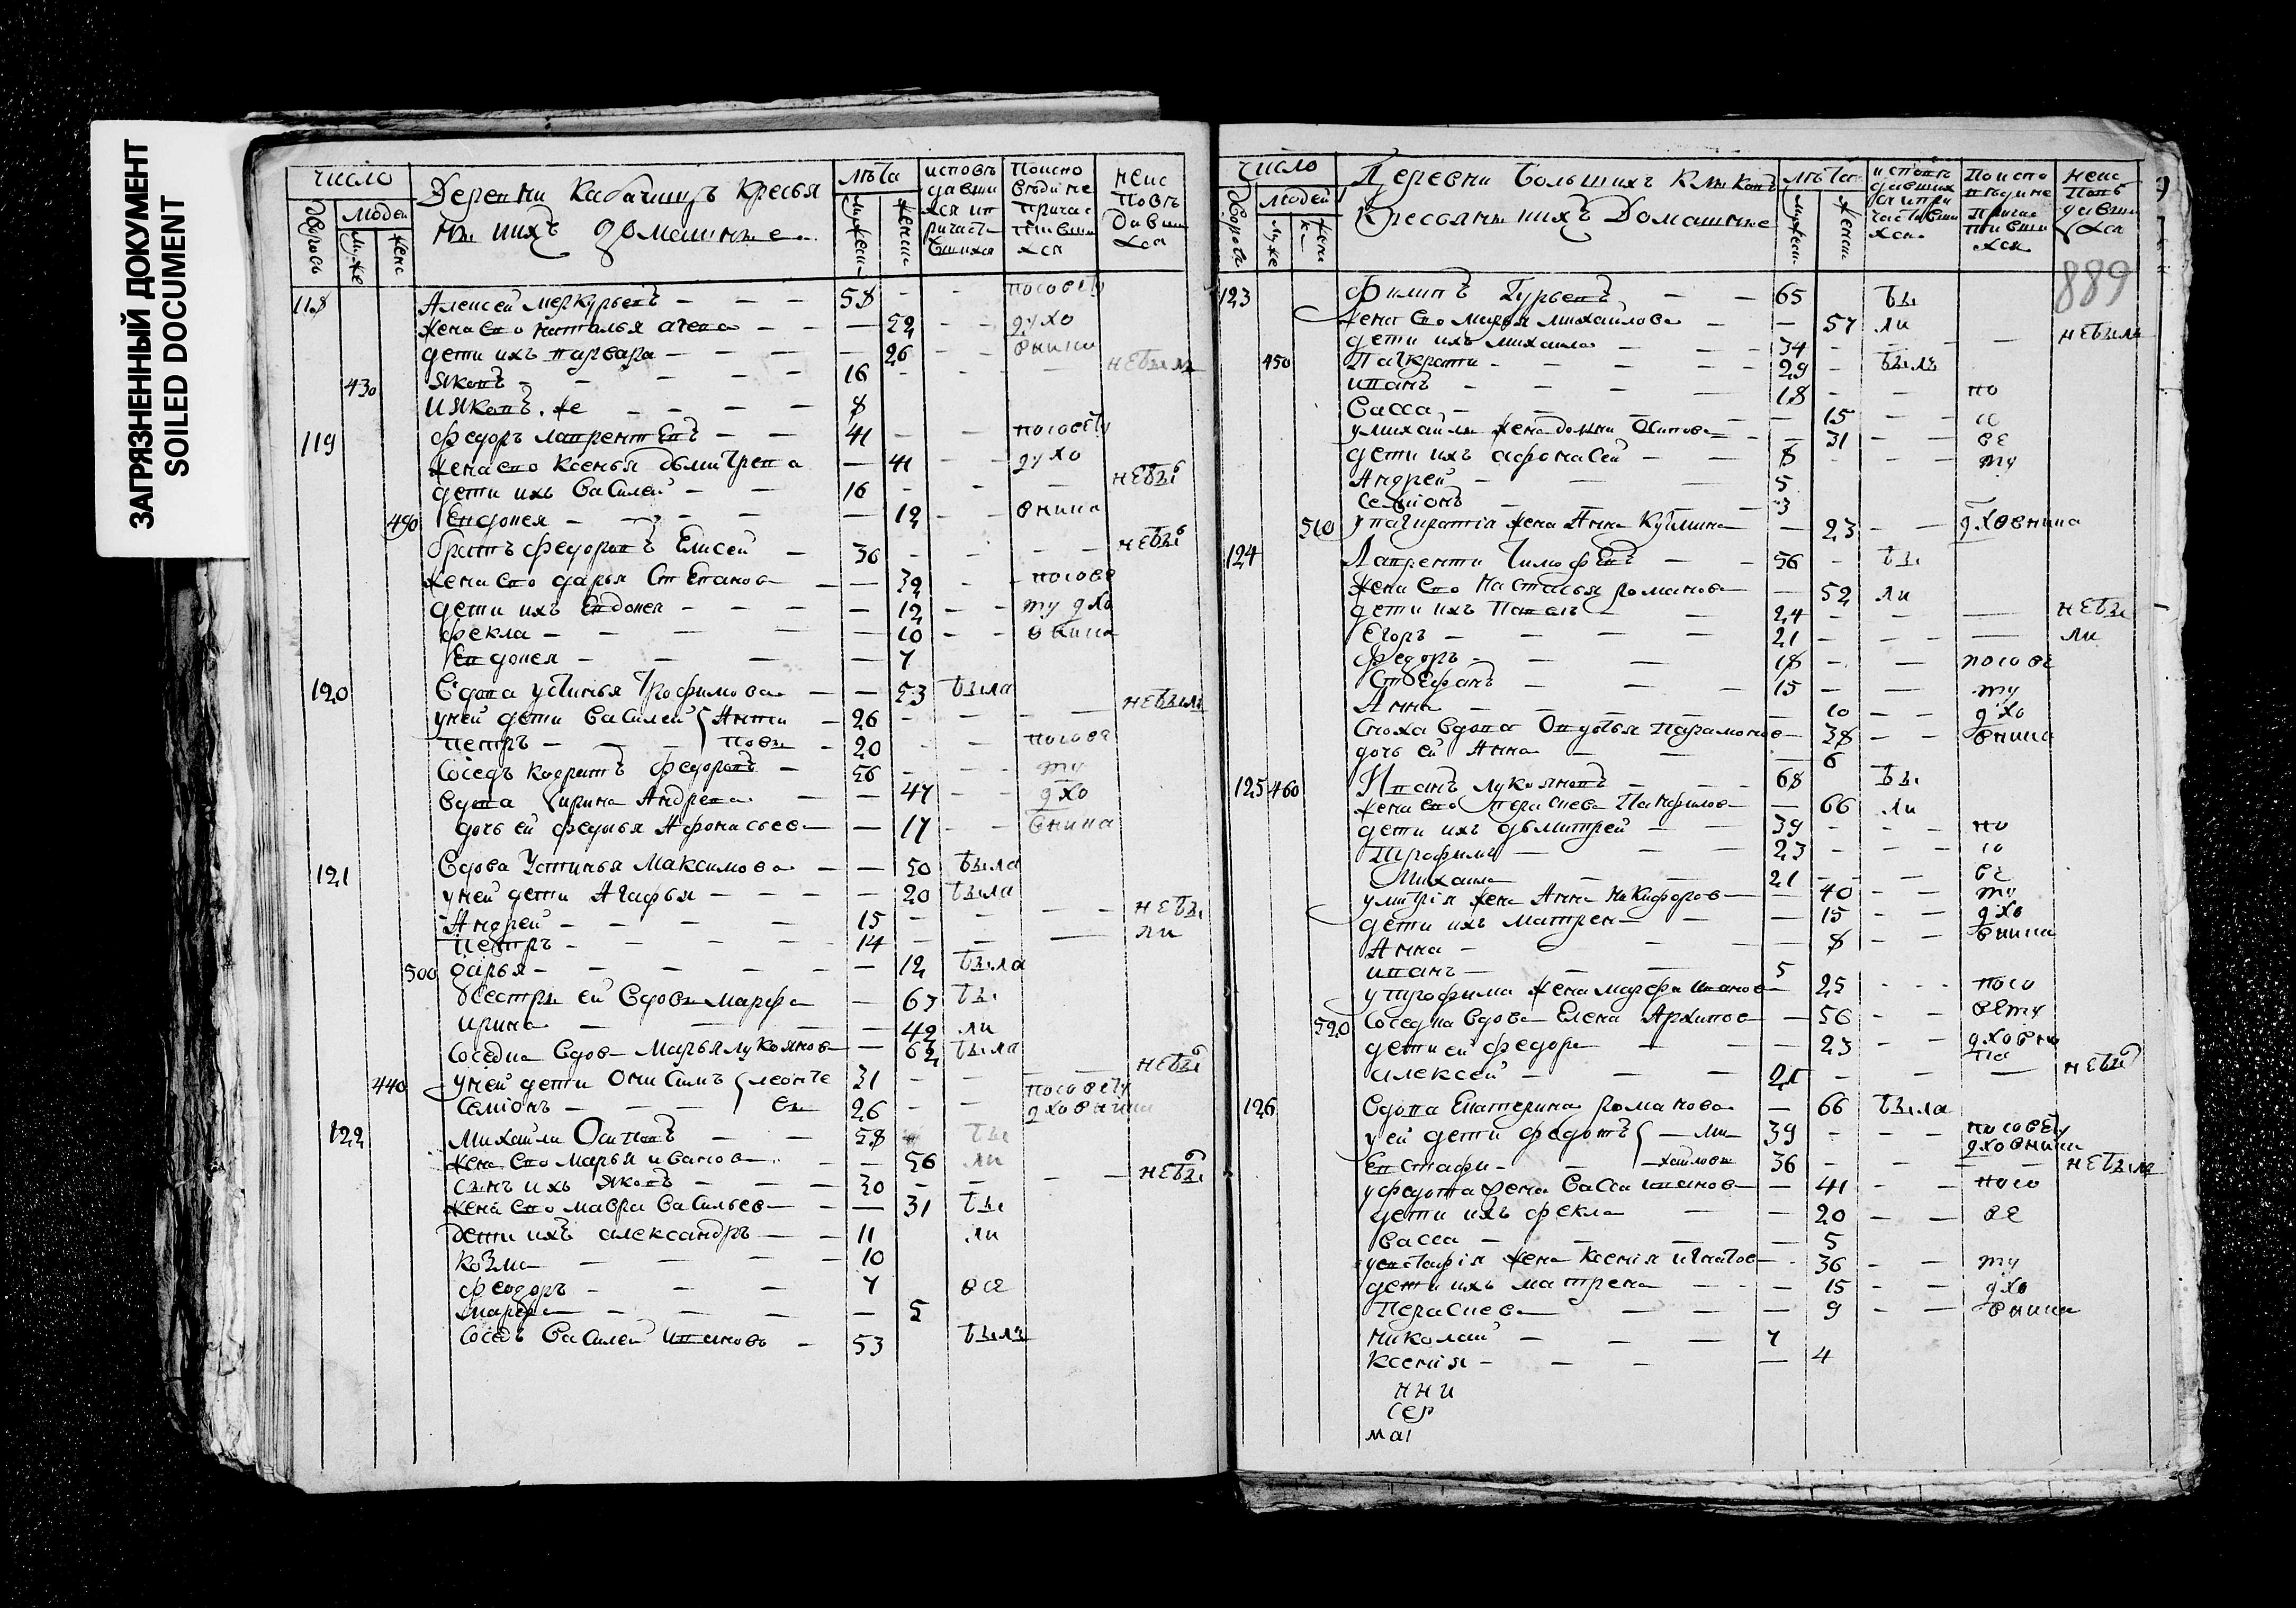 ЗАГРЯЗНЕННЫЙ ДОКУМЕНТ
SOILED DOCUMENT
число
дворовъ
людей
муже
женс
Деревни Кабачищъ кресья
нъ ихъ домашные
лѣта
мужеск
женск
исповѣ
давши
хся и п
ричасти
вшихся
По испо
вѣди не
причас
тивши
хся
неис
повѣ
давши
хся
118 Алексей меркурьевъ — — — 58 - - по совету
жена ево наталья агева — — — 52 - - духо
дети ихъ варвара — — — — 26 - - вника
яковъ — — — — 16 - - — не были
430 и яковъ же — — — 8
119 федоръ лаврентьевъ — — 41 - - по совету
жена ево ксенья дьмитрева — 41 - - духо
дети ихъ василей — — 16 - - — не бы
490 Евдокея — — — — 12 - - вника
братъ федоровъ Елисей — 36 - - - не бы
жена ево дарья степанов — — 32 - - по сове
дети ихъ Евдокея — — — — 12 - - ту дхо
фекла — — — — 10 - - вника
Евдокея — — — — 7
120 вдова устинья трофимова — — 53 была
у ней дети василей { Анти — 26 - - — не были
петръ — — — { повы — 20 - - по сове
соседъ кодратъ федоровъ — 56 - - ту
вдова ирина Андрева — — 47 - - дхо
дочь ей федосья Афонасьев — — 17 - - вника
121 Вдова Устинья максимова — — 50 была
у ней дети Агафья — — — — 20 была
Андрей — — — — 15 - - - не бы
петръ — — — — 14 - - — ли
500 дарья — — — — — 12 была
сестры ей вдовы марфа — 63 бы
ирина — — — — 42 ли
соседка вдов марья лукоянов — 62 была
440 у ней дети Онисимъ { леонте 31 - - — не бы
семионъ — — — { вы 26 - - по совету
дховника
122 михайла Осиповъ — — 58 бы
жена ево марья иванов — — 56 ли
сынъ ихъ яковъ — — — 30 - - — не бы
жена ево мавра васильев — — 31 бы
дети ихъ александръ — — 11 ли
козма — — — 10
феодоръ — — — 7 вс
марфа — — — — 5
соседъ василей ивановъ — 53 былъ
число
дворовъ
людей
муже
женск
Деревни Большихъ Клыковъ
Кресьянъ ихъ Домашные
лѣта
мужеск
женск
исповѣ
давших
ся и при
частивши
хся
По испо
вѣди не
причас
тивши
хся
неис
повѣ
давши
хся
889
123 Филипъ Гурьевъ — — 65 бы
жена ево марья михайлова — — 57 ли
дети ихъ михаила — — 34 - - — не былъ
450 Панкрати — — — — 29 - былъ
иванъ — — — 18 - - по
васса — — — — 15 - - со
у михаилы жена домна Осипова — — 31 - - ве
дети ихъ афонасей — — 8 - - ту
Андрей — — — 5
семионъ — — — 3
510 у панкратия жена Анна Кузмина — 23 - - дховника
124 Лаврентй Тимофеевъ — — 56 - бы
жена ево настасья романов — — 52 ли
дети ихъ павелъ — — 24 - - — не бы
Егоръ — — — 21 - - — ли
федоръ — — — 18 - - по сове
стефанъ — — — 15 - - ту
Анна — — — — 10 - - дхо
сноха вдова Овдотья парамонов — 38 - - вника
дочь ей Анна — — — 6
125 460 Иванъ лукояновъ — — 68 бы
жена ево прасковя Панфилов — — 66 ли
дети ихъ дьмитрей — — 39 - - по
трофимъ — — 23 - - со
михаила — — 21 - - ве
у митрия жена Анна Никифоров — — 40 - - ту
дети ихъ матрена — — — 15 - - дхо
Анна — — — — 8 - - вника
иванъ — — — 5
у трофима жена марфа иванов — 25 - - по со
520 соседка вдова Елена Архипов — — 56 - - вету
дети ей федора — — — 23 - - дховни
ка
алексей — — — 21 - - — не бы
126 Вдова Екатерина романова — 66 была
у ей дети федотъ { — ми — 39 - - по совету
дховника
Евстафи — — — хайловы 36 - - — не были
у федота жена васса иванов — — 41 - - по со
дети ихъ фекла — — 20 - - ве
васса — — — — 5
у евстафия жена ксения игнатов — 36 - - ту
дети ихъ матрена — — — 15 - - дхо
Парасковя — — — — 9 - - вника
николай — — — 7
ксения — — — — 4
нни
сер
маі